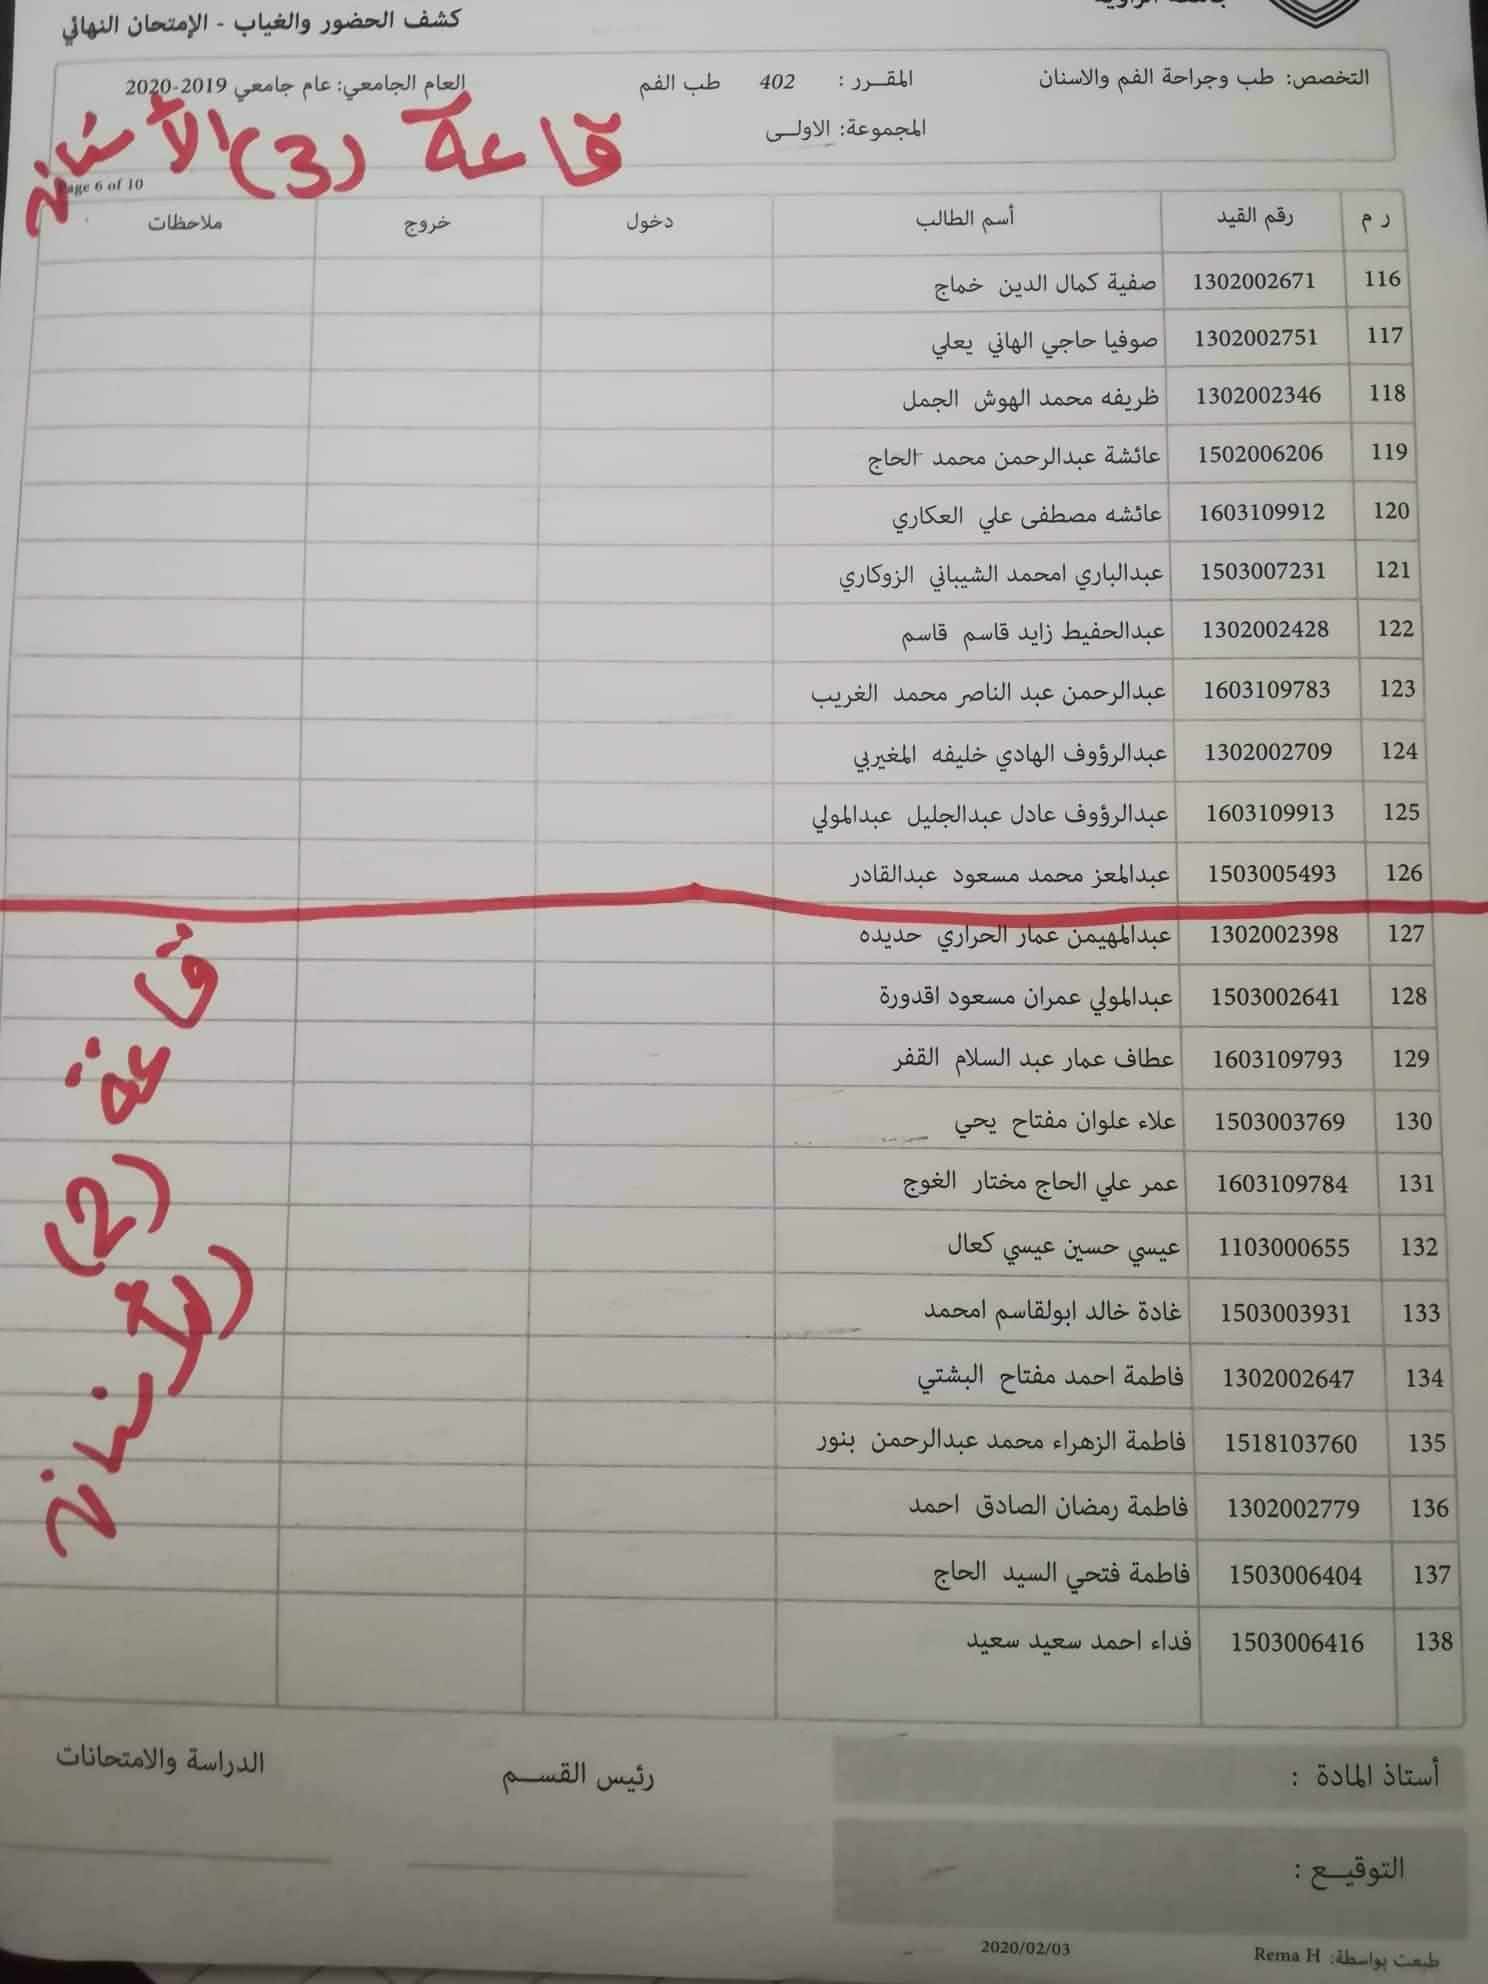 كشف الحضور والغياب - الإمتحان النهائي
التخصص: طب وجراحة الفم والاسنان المقـــرر : 402 طب الفم العام الجامعي: عام جامعي 2019-2020
المجموعة: الاولــى
قاعة (3) الأسنان
Page 6 of 10
ر م رقم القيد أسم الطالب دخول خروج ملاحظات
116 1302002671 صفية كمال الدين خماج
117 1302002751 صوفيا حاجي الهاني يعلي
118 1302002346 ظريفه محمد الهوش الجمل
119 1502006206 عائشة عبدالرحمن محمد الحاج
120 1603109912 عائشه مصطفى علي العكاري
121 1503007231 عبدالباري امحمد الشيباني الزوكاري
122 1302002428 عبدالحفيط زايد قاسم قاسم
123 1603109783 عبدالرحمن عبد الناصر محمد الغريب
124 1302002709 عبدالرؤوف الهادي خليفه المغيربي
125 1603109913 عبدالرؤوف عادل عبدالجليل عبدالمولي
126 1503005493 عبدالمعز محمد مسعود عبدالقادر
127 1302002398 عبدالمهيمن عمار الحراري حديده
128 1503002641 عبدالمولي عمران مسعود اقدورة
129 1603109793 عطاف عمار عبد السلام القفر
130 1503003769 علاء علوان مفتاح يحي
131 1603109784 عمر علي الحاج مختار الغوج
132 1103000655 عيسي حسين عيسي كعال
133 1503003931 غادة خالد ابولقاسم امحمد
134 1302002647 فاطمة احمد مفتاح البشتي
135 1518103760 فاطمة الزهراء محمد عبدالرحمن بنور
136 1302002779 فاطمة رمضان الصادق احمد
137 1503006404 فاطمة فتحي السيد الحاج
138 1503006416 فداء احمد سعيد سعيد
قاعة (2) الأسنان
أستاذ المادة : رئيس القســـم الدراسة والامتحانات
التوقيــع :
طبعت بواسطة: Rema H 2020/02/03